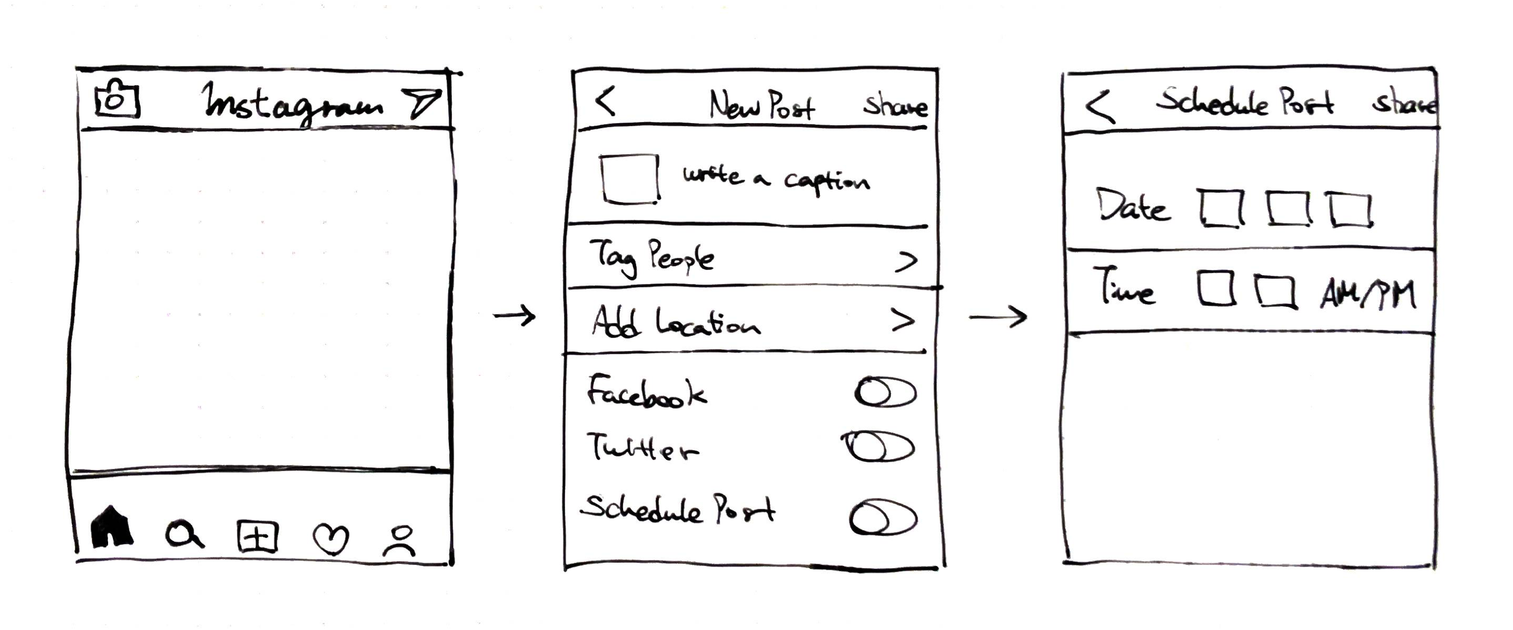 Instagram
New Post share
write a caption
Tag People
Add Location
Facebook
Twitter
Schedule Post
Schedule Post share
Date
Time AM/PM